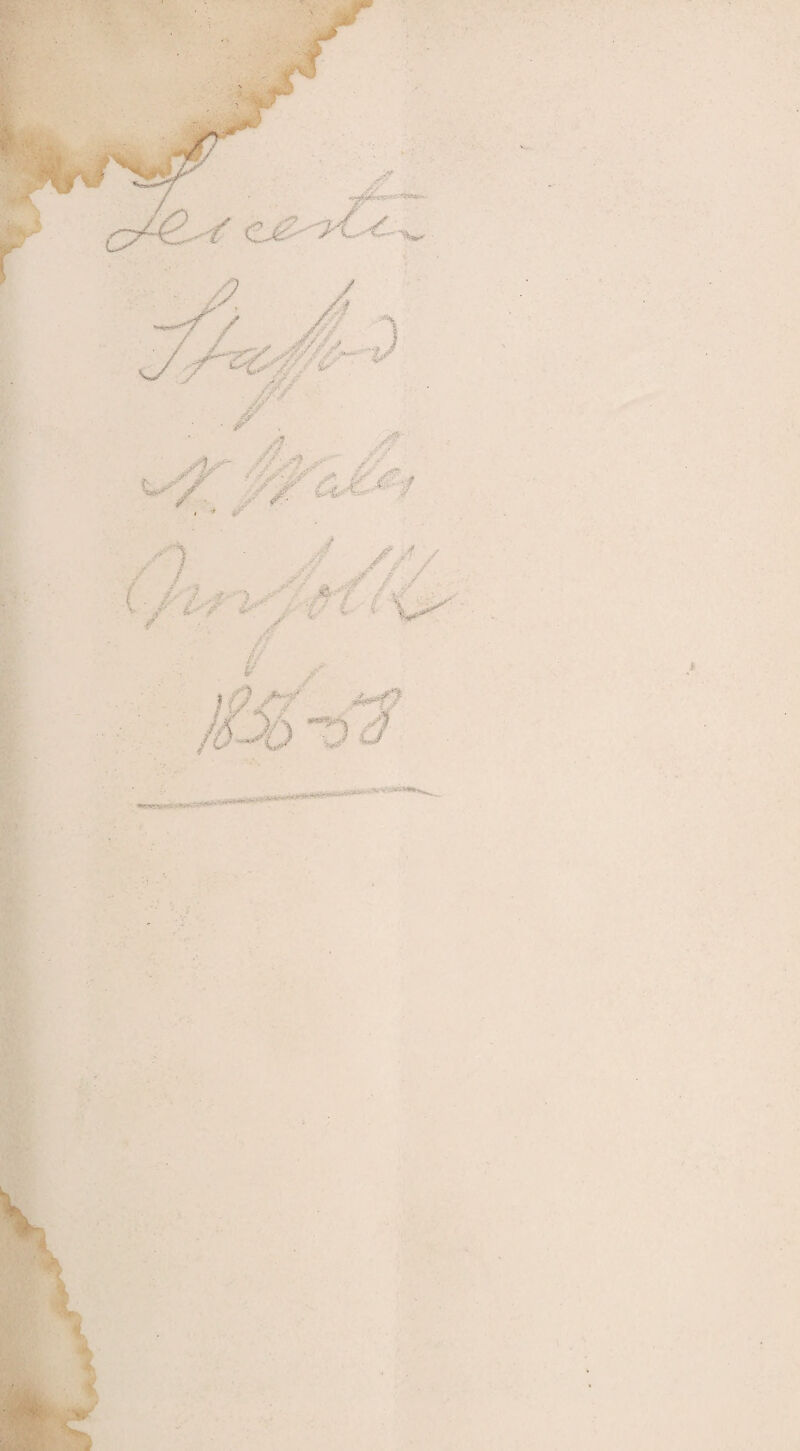 Leicester
Stafford
N. Wales
Norfolk
1856-58